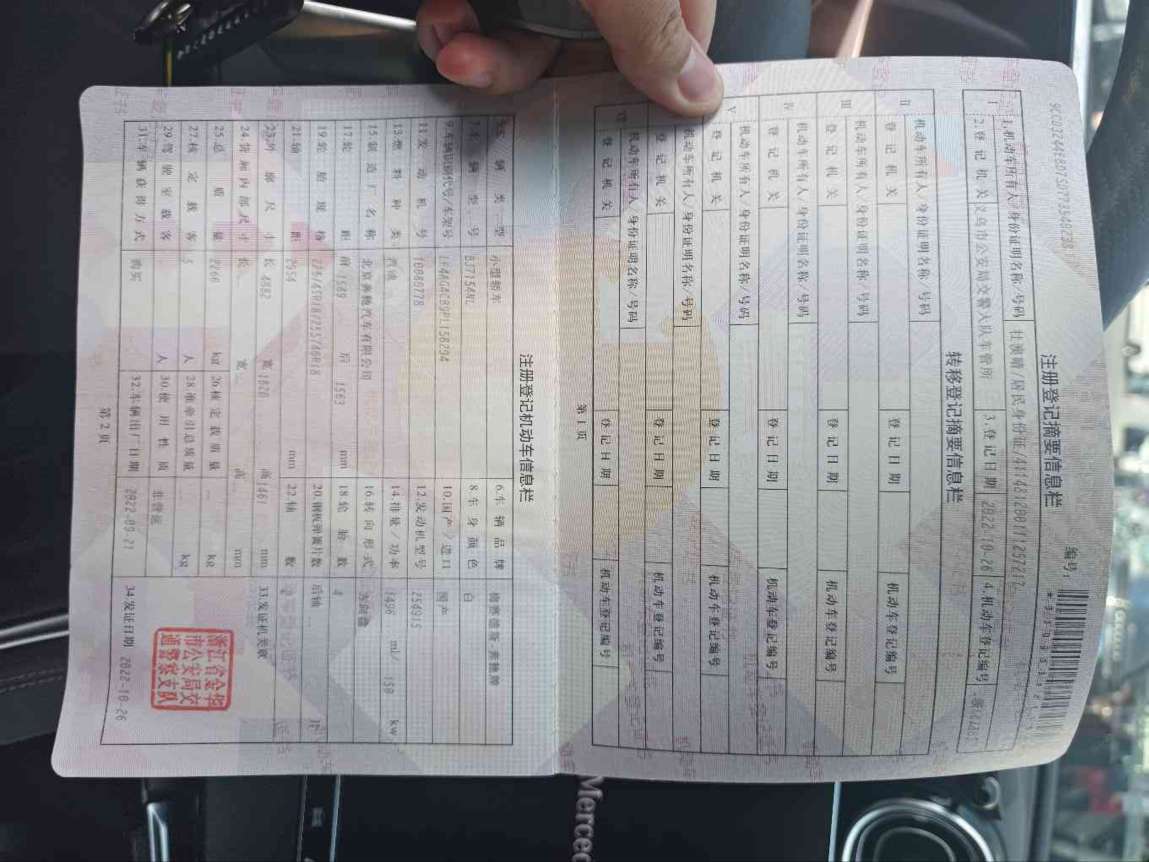 注册登记摘要信息栏
编号:
Ⅰ
1.机动车所有人/身份证明名称/号码
2.登记机关 义乌市公安局交警大队车管所 3.登记日期 2022-10-26 4.机动车登记编号
转移登记摘要信息栏
Ⅱ
机动车所有人/身份证明名称/号码
登记机关 登记日期 机动车登记编号
Ⅲ
机动车所有人/身份证明名称/号码
登记机关 登记日期 机动车登记编号
Ⅳ
机动车所有人/身份证明名称/号码
登记机关 登记日期 机动车登记编号
Ⅴ
机动车所有人/身份证明名称/号码
登记机关 登记日期 机动车登记编号
机动车所有人/身份证明名称/号码
登记机关 登记日期 机动车登记编号
机动车所有人/身份证明名称/号码
登记机关 登记日期 机动车登记编号
第1页
注册登记机动车信息栏
车辆类型 小型轿车 6.车辆品牌 梅赛德斯-奔驰牌
车辆型号 8.车身颜色 白
9.车辆识别代号/车架号 10.国产/进口 国产
11.发动机号 10866778 12.发动机型号 254915
13.燃料种类 汽油 14.排量/功率 1496 ml/ 150 kw
15.制造厂名称 北京奔驰汽车有限公司 16.转向形式 方向盘
17.轮距 前 1589 后 1563 mm 18.轮胎数 4
19.轮胎规格 225/45R18/255/40R18 20.钢板弹簧片数 后轴
21.轴距 2954 mm 22.轴数
23.外廓尺寸 长 4882 宽 1820 高 1461 mm 33.发证机关章
24.货厢内部尺寸 长 宽 高 mm
浙江省金华市公安局交通警察支队
25.总质量 2266 kg 26.核定载质量 kg
27.核定载客 5 人 28.准牵引总质量 kg
29.驾驶室载客 人 30.使用性质 非营运
31.车辆获得方式 购买 32.车辆出厂日期 2022-09-21 34.发证日期 2022-10-26
第2页
Merced